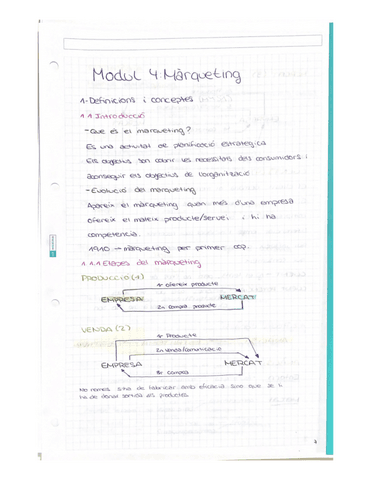 Modul 4: Màrqueting
1. Definicions i conceptes
1.1 Introducció
- Que es el marqueting?
Es una activitat de planificació estrategica
Els objectius son cobrir les necessitats dels consumidors i
aconseguir els objectius de l'organització
- Evolució del marqueting
Apareix el marqueting quan més d'una empresa
ofereix el mateix producte/servei i hi ha
competencia.
1910 → marqueting per primer cop.
1.1.1 Etapes del marqueting
PRODUCCIÓ (1)
1r ofereix producte
EMPRESA MERCAT
2n compra producte
VENDA (2)
1r Producte
2n venda/comunicació
EMPRESA MERCAT
3r compra
No nomes s'ha de fabricar amb eficacia sino que se li
ha de donar sortida als productes